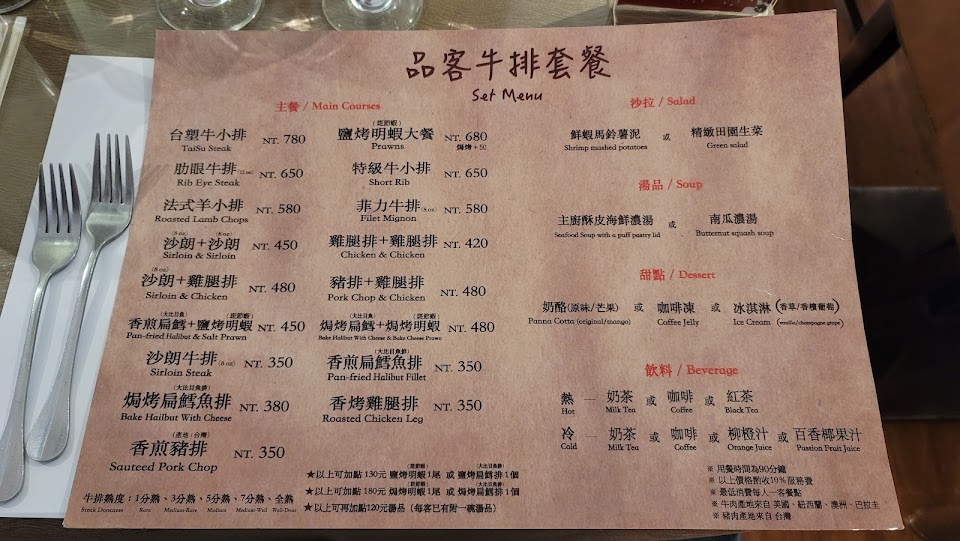 品客牛排套餐
Set Menu
主餐 / Main Courses
台塑牛小排 NT. 780
TaiSu Steak
肋眼牛排(12oz) NT. 650
Rib Eye Steak
法式羊小排 NT. 580
Roasted Lamb Chops
(8 oz) (8 oz)
沙朗+沙朗 NT. 450
Sirloin & Sirloin
(8 oz)
沙朗+雞腿排 NT. 480
Sirloin & Chicken
(大比目魚) (斑節蝦)
香煎扁鱈+鹽烤明蝦 NT. 450
Pan-fried Halibut & Salt Prawn
沙朗牛排(8 oz) NT. 350
Sirloin Steak
(大比目魚排)
焗烤扁鱈魚排 NT. 380
Bake Hailbut With Cheese
(產地:台灣)
香煎豬排 NT. 350
Sauteed Pork Chop
(斑節蝦)
鹽烤明蝦大餐 NT. 680
Prawns 焗烤+50
特級牛小排 NT. 650
Short Rib
菲力牛排(8 oz) NT. 580
Filet Mignon
雞腿排+雞腿排 NT. 420
Chicken & Chicken
豬排+雞腿排 NT. 480
Pork Chop & Chicken
(大比目魚) (斑節蝦)
焗烤扁鱈+焗烤明蝦 NT. 480
Bake Halibut With Cheese & Bake Cheese Prawn
(大比目魚排)
香煎扁鱈魚排 NT. 350
Pan-fried Halibut Fillet
香烤雞腿排 NT. 350
Roasted Chicken Leg
(斑節蝦) (大比目魚排)
★以上可加點 130元 鹽烤明蝦1尾 或 鹽烤扁鱈排1個
(斑節蝦) (大比目魚排)
★以上可加點 180元 焗烤明蝦1尾 或 焗烤扁鱈排1個
★以上可再加點120元湯品 (每客已有附一碗湯品)
牛排熟度:1分熟、3分熟、5分熟、7分熟、全熟
Steak Doneness Rare Medium-Rare Medium Medium-Well Well-Done
沙拉 / Salad
鮮蝦馬鈴薯泥 或 精緻田園生菜
Shrimp mashed potatoes Green salad
湯品 / Soup
主廚酥皮海鮮濃湯 或 南瓜濃湯
Seafood Soup with a puff pastry lid Butternut squash soup
甜點 / Dessert
奶酪(原味/芒果) 或 咖啡凍 或 冰淇淋(香草/香檳葡萄)
Panna Cotta (original/mango) Coffee Jelly Ice Cream (vanilla/champagne grape)
飲料 / Beverage
熱 — 奶茶 或 咖啡 或 紅茶
Hot Milk Tea Coffee Black Tea
冷 — 奶茶 或 咖啡 或 柳橙汁 或 百香椰果汁
Cold Milk Tea Coffee Orange Juice Passion Fruit Juice
※ 用餐時間為90分鐘
※ 以上價格酌收10%服務費
※ 最低消費每人一客餐點
※ 牛肉產地來自 美國、紐西蘭、澳洲、巴拉圭
※ 豬肉產地來自 台灣